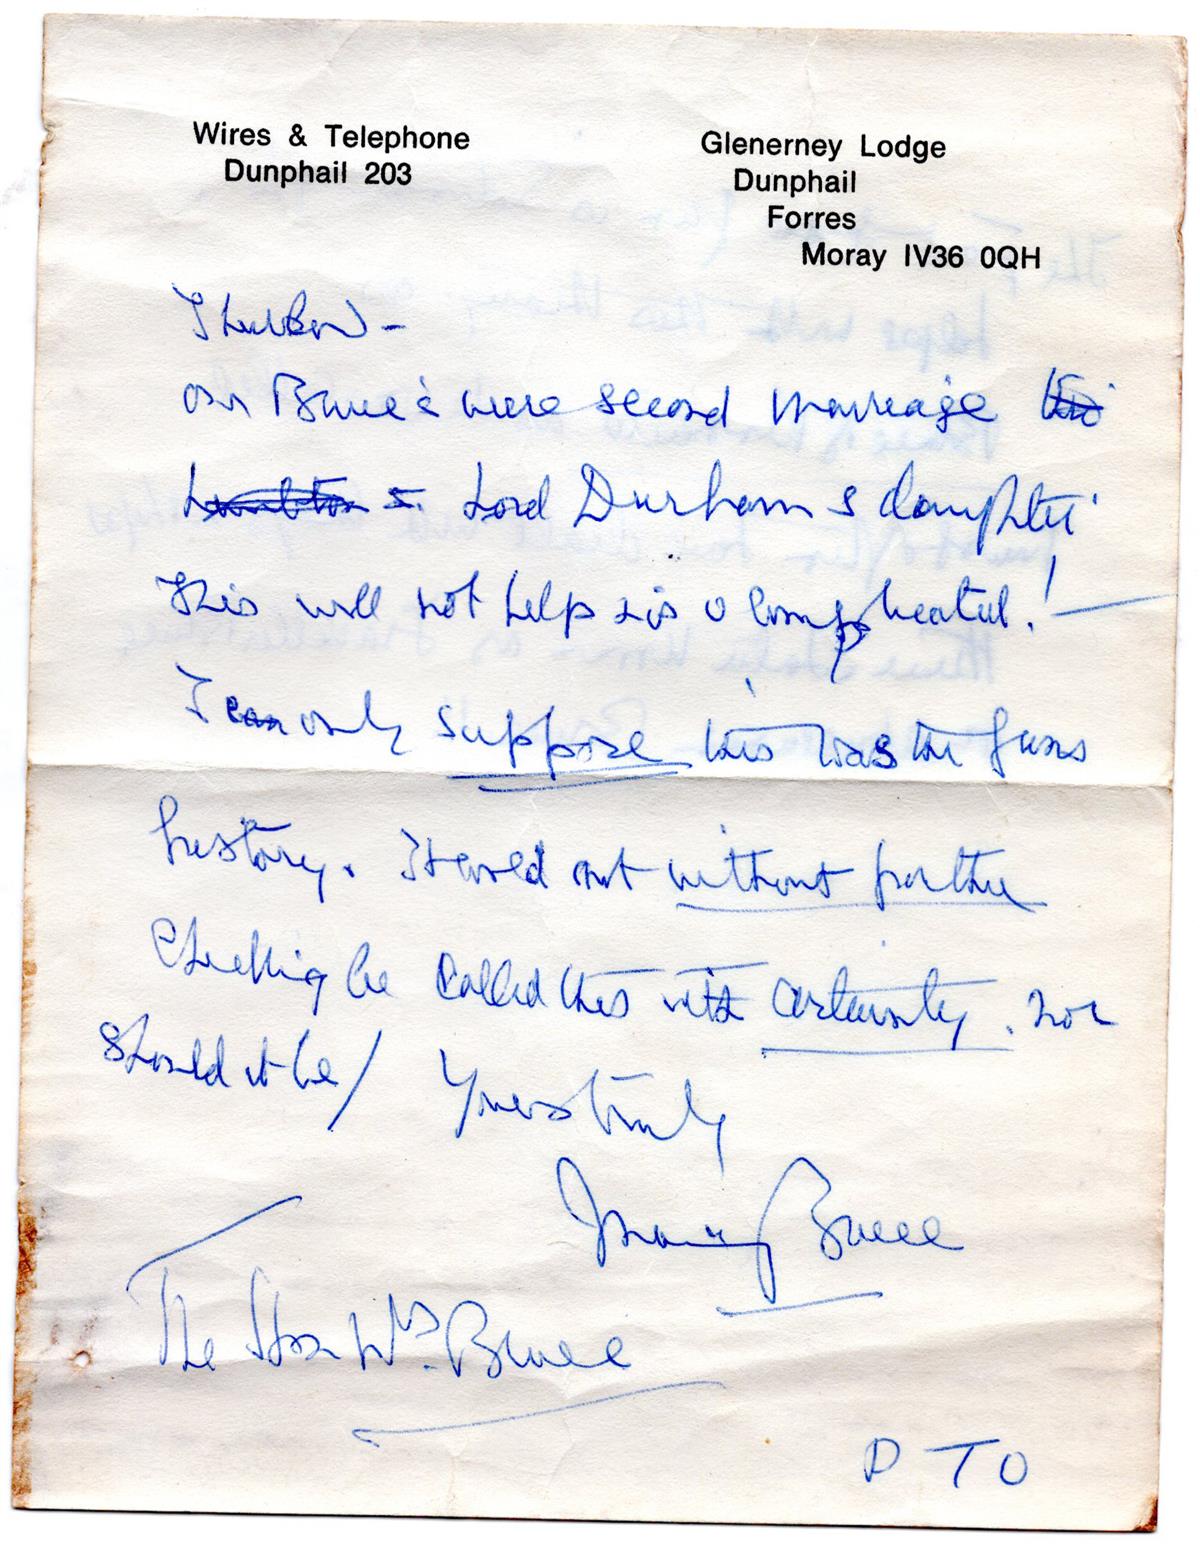 Wires & Telephone
Dunphail 203
Glenerney Lodge
Dunphail
Forres
Moray IV36 0QH
our Bruce's were second marriage
Lord Durham's daughter
This will not help & is
I can only suppose this was the guns
history. It could not without further
checking be called this with certainty. nor
should it be / Yours truly
Bruce
The Hon Mrs. Bruce
P T O